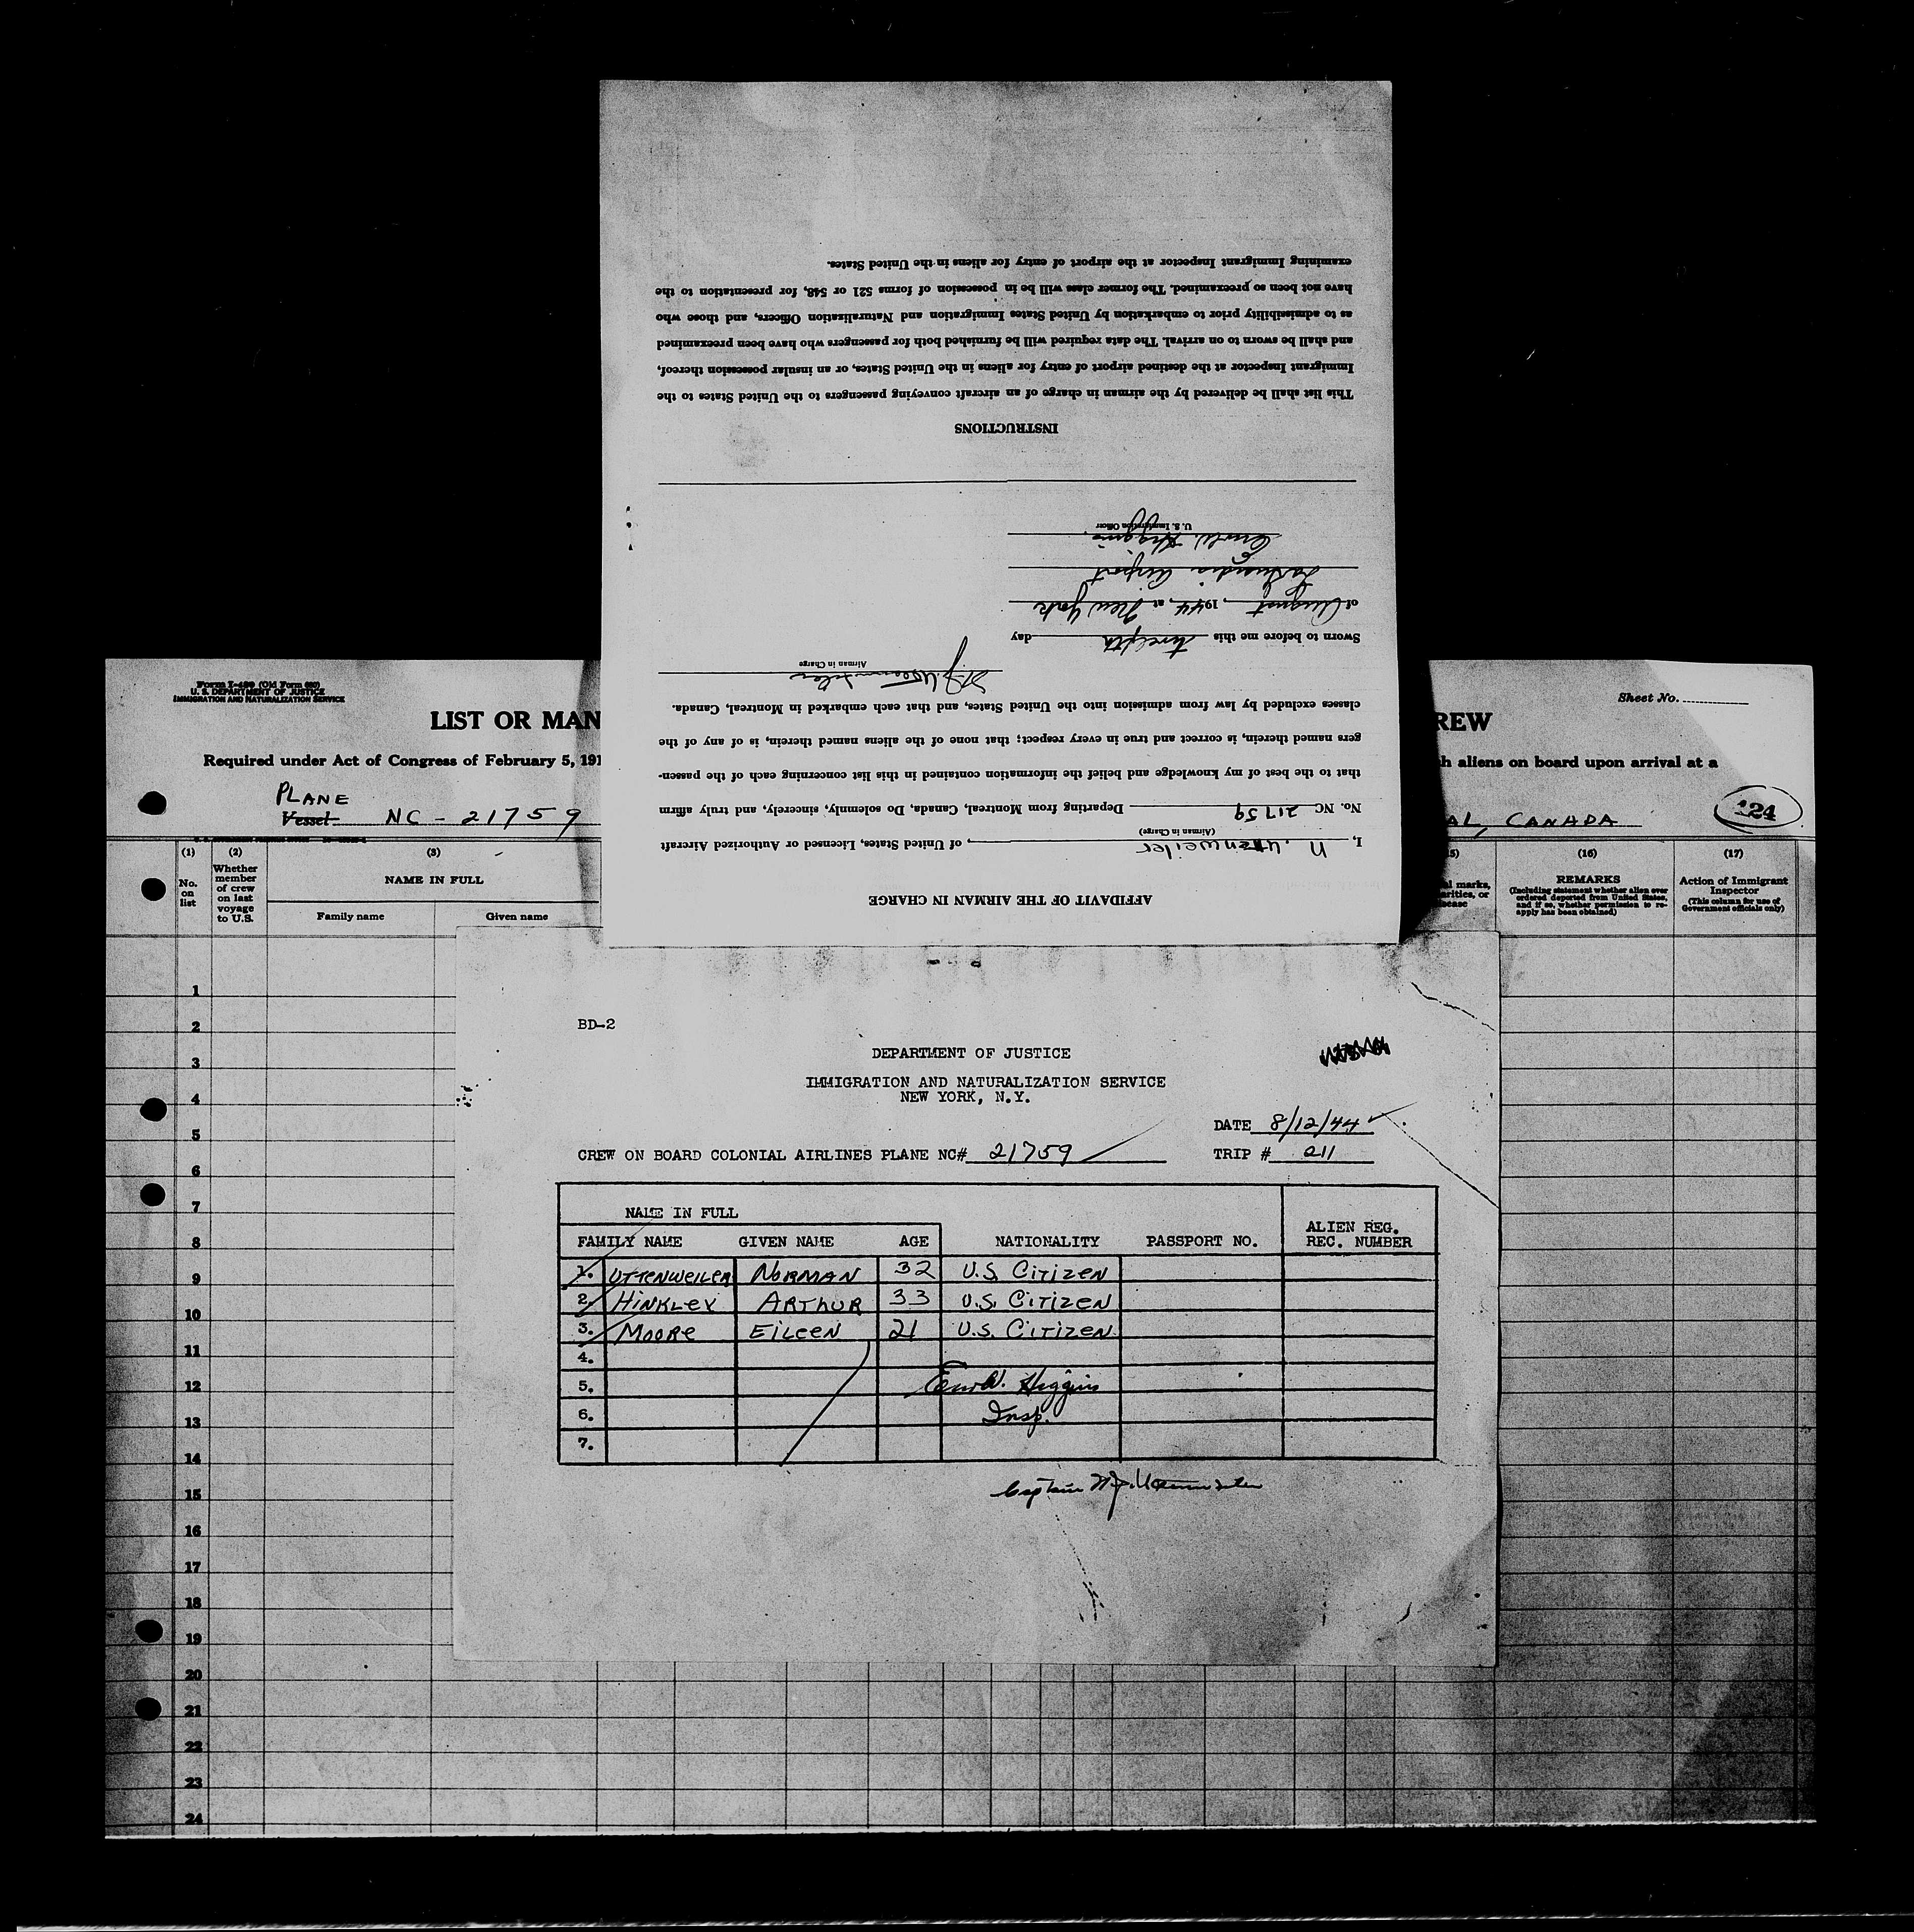 AFFIDAVIT OF THE AIRMAN IN CHARGE
I, N. Uttenweiler, of United States, Licensed or Authorized Aircraft
(Airman in Charge)
No. NC 21759 Departing from Montreal, Canada, Do solemnly, sincerely, and truly affirm
that to the best of my knowledge and belief the information contained in this list concerning each of the passen-
gers named therein, is correct and true in every respect; that none of the aliens named therein, is of any of the
classes excluded by law from admission into the United States, and that each embarked in Montreal, Canada.
N.J. Uttenweiler
Airman in Charge
Sworn to before me this twelfth day
of August, 1944, at New York
LaGuardia Airport
Higgins
U. S. Immigration Officer
INSTRUCTIONS
This list shall be delivered by the airman in charge of an aircraft conveying passengers to the United States to the
Immigrant Inspector at the destined airport of entry for aliens in the United States, or an insular possession thereof,
and shall be sworn to on arrival. The data required will be furnished both for passengers who have been preexamined
as to admissibility prior to embarkation by United States Immigration and Naturalization Officers, and those who
have not been so preexamined. The former class will be in possession of forms 521 or 548, for presentation to the
examining Immigrant Inspector at the airport of entry for aliens in the United States.
Form I-489 (Old Form 680)
U. S. DEPARTMENT OF JUSTICE
IMMIGRATION AND NATURALIZATION SERVICE
Sheet No.
LIST OR MAN
REW
Required under Act of Congress of February 5, 191
h aliens on board upon arrival at a
PLANE
Vessel NC - 21759
AL, CANADA
124
(1) (2) (3) 5) (16) (17)
No. on list
Whether member of crew on last voyage to U.S.
NAME IN FULL
Family name Given name
l marks, arities, or sease
REMARKS
(Including statement whether alien ever ordered deported from United States, and if so, whether permission to re-apply has been obtained)
Action of Immigrant Inspector
(This column for use of Government officials only)
1
2
3
4
5
6
7
8
9
10
11
12
13
14
15
16
17
18
19
20
21
22
23
24
BD-2
DEPARTMENT OF JUSTICE
IMMIGRATION AND NATURALIZATION SERVICE
NEW YORK, N.Y.
DATE 8/12/44
CREW ON BOARD COLONIAL AIRLINES PLANE NC# 21759 TRIP # 211
NAME IN FULL
FAMILY NAME GIVEN NAME AGE NATIONALITY PASSPORT NO. ALIEN REG. REC. NUMBER
1. UTTENWEILER NORMAN 32 U.S. CITIZEN
2. HINKLEY ARTHUR 33 U.S. CITIZEN
3. MOORE EILEEN 21 U.S. CITIZEN
4.
5. Higgins
6. Insp.
7.
Captain N.J. Uttenweiler